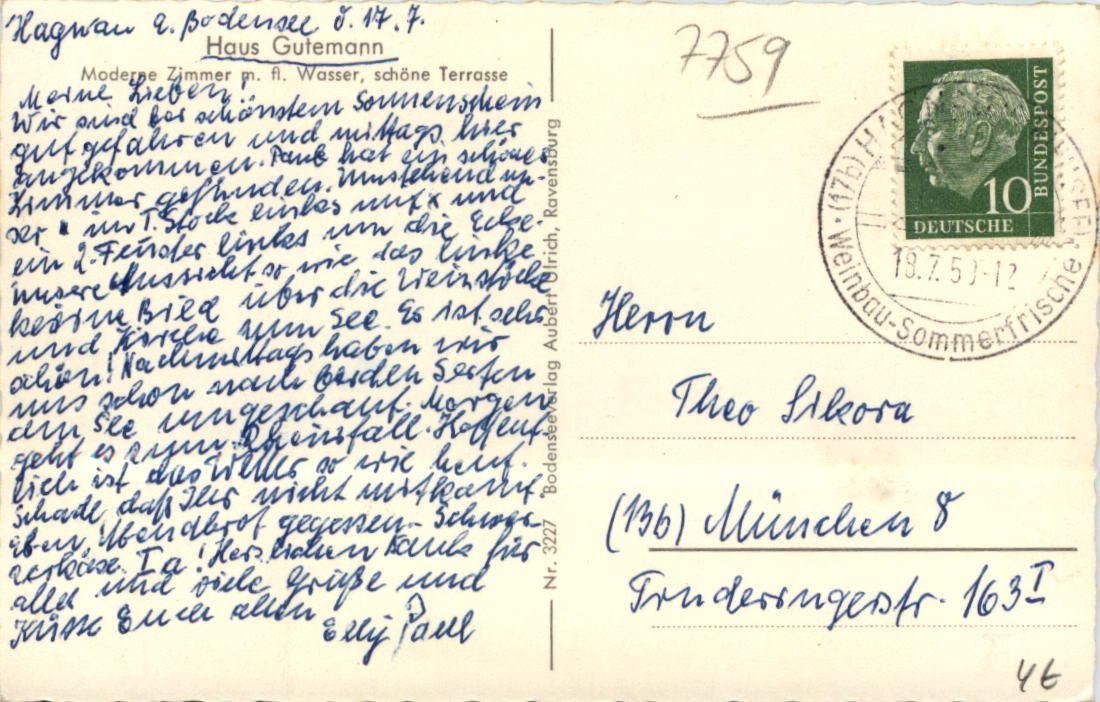 Hagnau a. Bodensee d. 17.7.
Haus Gutemann
Moderne Zimmer m. fl. Wasser, schöne Terrasse
Meine Lieben!
Wir sind bei schönstem Sonnenschein
gut gefahren und mittags hier
angekommen. Paul hat ein schönes
Zimmer gefunden. Umstehend un-
ser im 1. Stock links mit x und
ein 2. Fenster links um die Ecke.
Unsere Aussicht so wie das linke
kleine Bild über die Weinstöcke
und Kirche zum See. Es ist sehr
schön! Nachmittags haben wir
uns schon nach beiden Seiten
am See umgeschaut. Morgen
geht es zum Rheinfall. Hoffent-
lich ist das Wetter so wie heut.
Schade daß Ihr nicht mitkamt.
Eben Abendbrot gegessen - Schwei-
zerkäse Ia! Herzlichen Dank für
alles und viele Grüße und
Küsse Euch allen
Elly Paul
Nr. 3227 Bodenseeverlag Aubert Ulrich, Ravensburg
7759
DEUTSCHE BUNDESPOST
10
(17b)
18.7.5 -12
Weinbau-Sommerfrische
Herrn
Theo Sikora
(13b) München 8
Truderingerstr. 163 I
4t